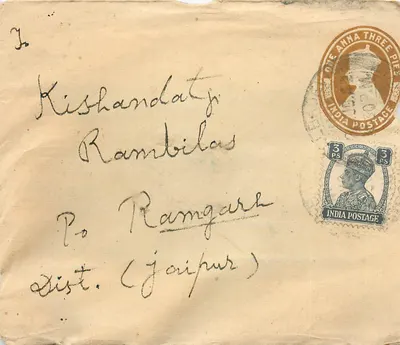 To
Kishandatji
Rambilas
Po Ramgarh
Dist. (Jaipur)
ONE ANNA THREE PIES
INDIA POSTAGE
3 PS 3 PS
INDIA POSTAGE